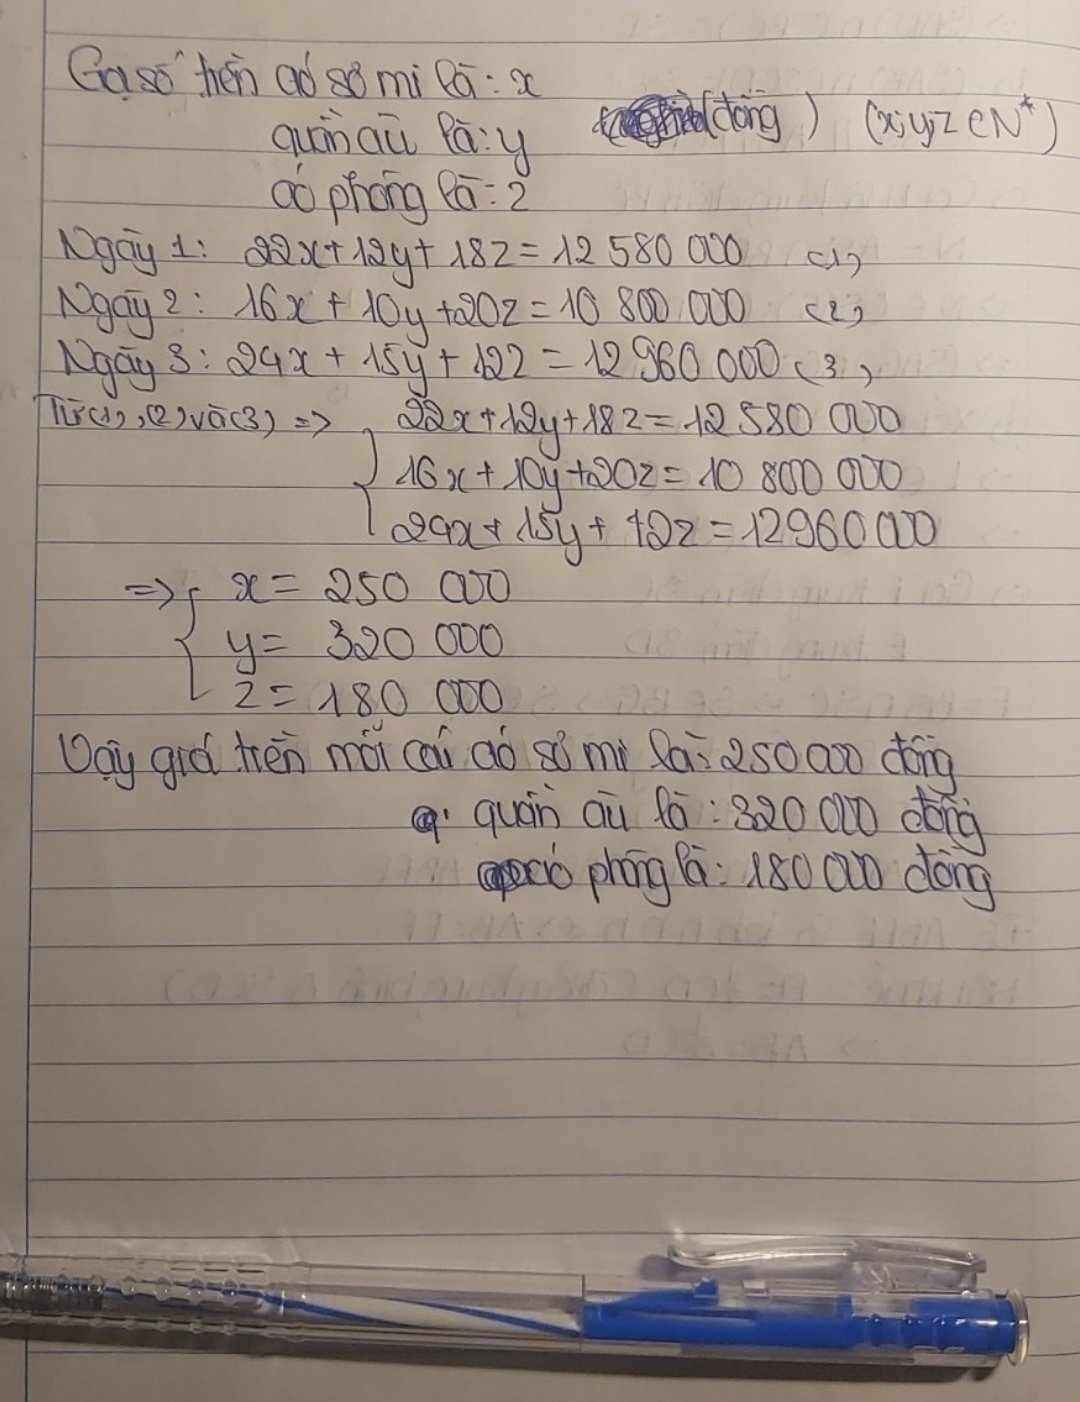 Gọi số tiền áo sơ mi là: x
quần âu là: y (đồng) (x,y,z ∈ N*)
áo phông là: z
Ngày 1: 22x + 12y + 18z = 12 580 000 (1)
Ngày 2: 16x + 10y + 20z = 10 800 000 (2)
Ngày 3: 24x + 15y + 12z = 12 960 000 (3)
Từ (1), (2) và (3) => 22x + 12y + 18z = 12 580 000
16x + 10y + 20z = 10 800 000
24x + 15y + 12z = 12 960 000
=> x = 250 000
y = 320 000
z = 180 000
Vậy giá tiền mỗi cái áo sơ mi là: 250 000 đồng
quần âu là: 320 000 đồng
áo phông là: 180 000 đồng